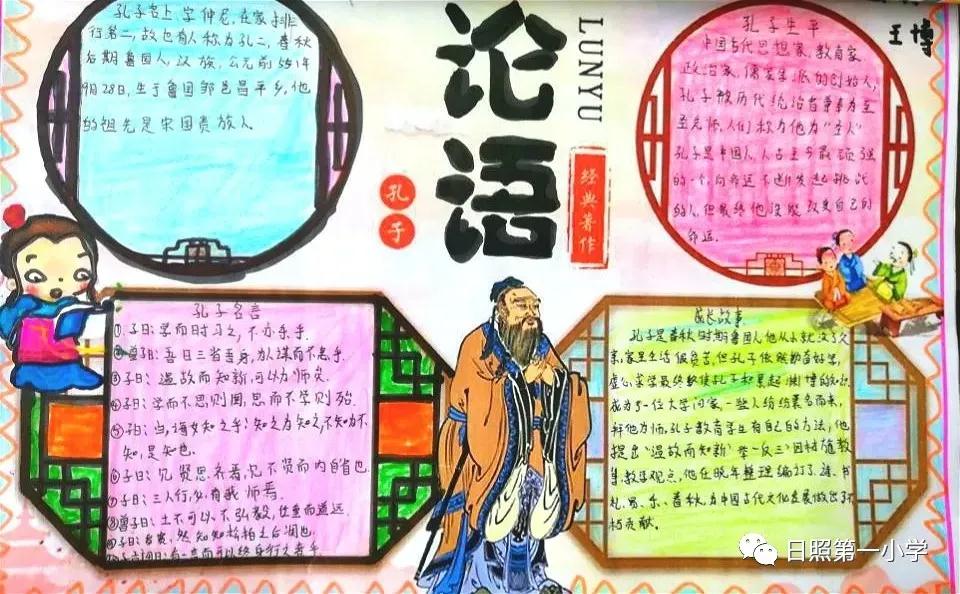 孔子名丘,字仲尼,在家排
行第二,故也有人称为孔二,春秋
后期鲁国人,汉族,公元前551年
9月28日,生于鲁国邹邑昌平乡,他
的祖先是宋国贵族人。
论语
LUNYU
孔子
经典著作
孔子生平
中国古代思想家、教育家、
政治家,儒家学派的创始人,
孔子被历代统治者尊奉为至
圣先师,人们称为他为“圣人”
孔子是中国人,人古至今最顽强
的一个,向命运不断发起挑战
的人,但最终他没能改变自己的
命运。
王博
孔子名言
①子曰:学而时习之,不亦乐乎
②曾子曰:吾日三省吾身,为人谋而不忠乎
③子曰:温故而知新,可以为师矣
④子曰:学而不思则罔,思而不学则殆
⑤子曰:由,诲女知之乎:知之为知之,不知为不
知,是知也
⑥子曰:见贤思齐焉,见不贤而内自省也
⑦子曰:三人行,必有我师焉
⑧曾子曰:士不可以不弘毅,任重而道远
⑨子曰:岁寒,然知知松柏之后凋也
有一言而可以终身行之者乎
成长故事
孔子是春秋时期鲁国人他从小就没了父
亲,家里生活很贫苦,但孔子依然勤奋好学,
虚心求学最终使孔子积累起渊博的知识
成为了一位大学问家,一些人纷纷慕名而来,
拜他为师,孔子教育学生有自己的方法,他
提出“温故而知新”举一反三”因材施教
等教学观点,他在晚年整理编订了诗、书
礼、易、乐、春秋,为中国古代文化发展做出了积
极贡献。
日照第一小学